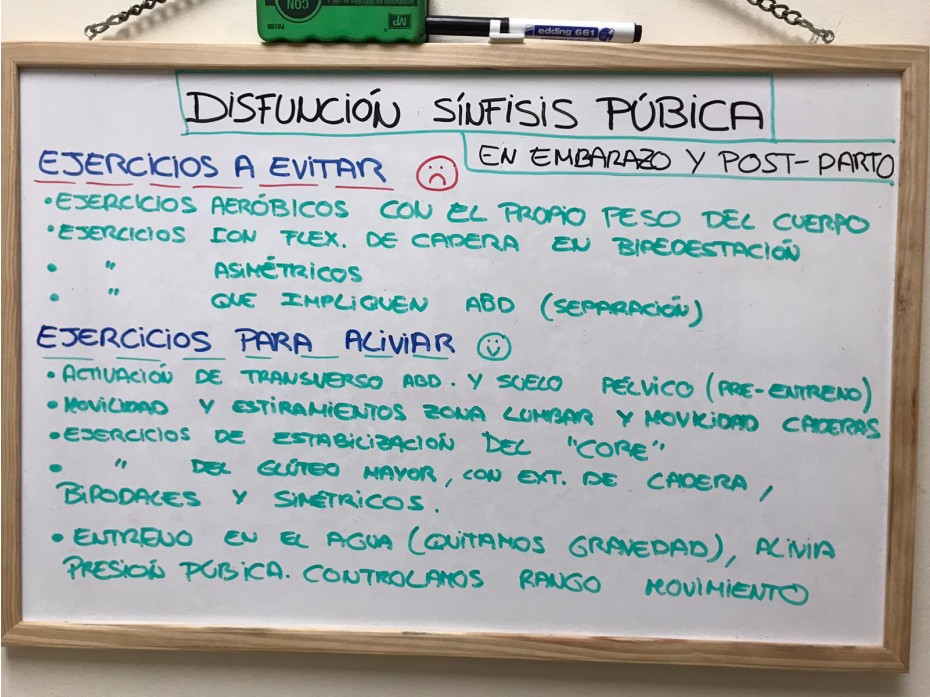 edding 661
DISFUNCIÓN SÍNFISIS PÚBICA
EN EMBARAZO Y POST-PARTO
EJERCICIOS A EVITAR
• EJERCICIOS AERÓBICOS CON EL PROPIO PESO DEL CUERPO
• EJERCICIOS CON FLEX. DE CADERA EN BIPEDESTACIÓN
• " ASIMÉTRICOS
• " QUE IMPLIQUEN ABD (SEPARACIÓN)
EJERCICIOS PARA ALIVIAR
• ACTIVACIÓN DE TRANSVERSO ABD. Y SUELO PÉLVICO (PRE-ENTRENO)
• MOVILIDAD Y ESTIRAMIENTOS ZONA LUMBAR Y MOVILIDAD CADERAS
• EJERCICIOS DE ESTABILIZACIÓN DEL "CORE"
• " DEL GLÚTEO MAYOR, CON EXT. DE CADERA,
BIPODALES Y SIMÉTRICOS.
• ENTRENO EN EL AGUA (QUITAMOS GRAVEDAD), ALIVIA
PRESIÓN PÚBICA. CONTROLAMOS RANGO MOVIMIENTO